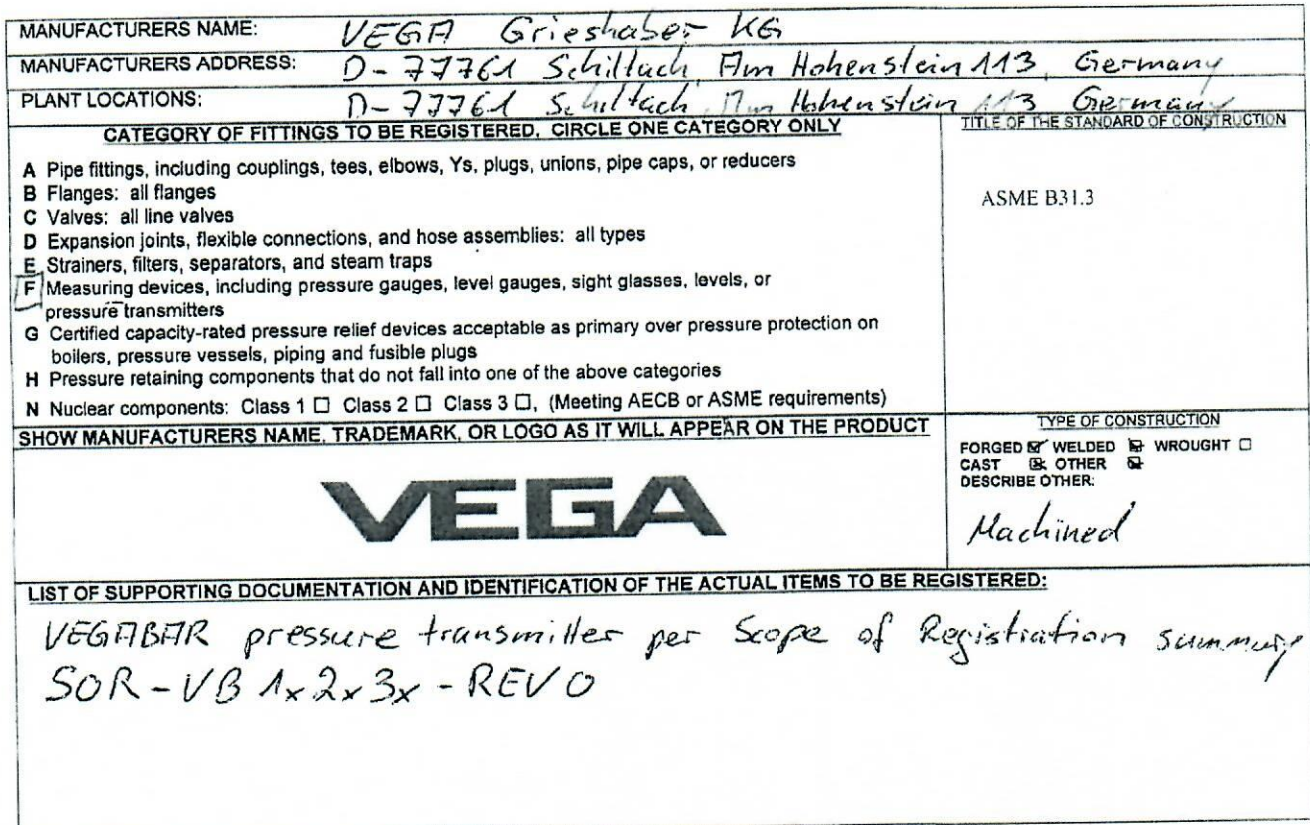 MANUFACTURERS NAME: VEGA Grieshaber KG
MANUFACTURERS ADDRESS: D-77761 Schiltach, Am Hohenstein 113, Germany
PLANT LOCATIONS: D-77761 Schiltach, Am Hohenstein 113 Germany
CATEGORY OF FITTINGS TO BE REGISTERED, CIRCLE ONE CATEGORY ONLY
A Pipe fittings, including couplings, tees, elbows, Ys, plugs, unions, pipe caps, or reducers
B Flanges: all flanges
C Valves: all line valves
D Expansion joints, flexible connections, and hose assemblies: all types
E Strainers, filters, separators, and steam traps
F Measuring devices, including pressure gauges, level gauges, sight glasses, levels, or
pressure transmitters
G Certified capacity-rated pressure relief devices acceptable as primary over pressure protection on
boilers, pressure vessels, piping and fusible plugs
H Pressure retaining components that do not fall into one of the above categories
N Nuclear components: Class 1 ☐ Class 2 ☐ Class 3 ☐, (Meeting AECB or ASME requirements)
TITLE OF THE STANDARD OF CONSTRUCTION
ASME B31.3
SHOW MANUFACTURERS NAME, TRADEMARK, OR LOGO AS IT WILL APPEAR ON THE PRODUCT
VEGA
TYPE OF CONSTRUCTION
FORGED ☑ WELDED ☑ WROUGHT ☐
CAST ☒ OTHER ☑
DESCRIBE OTHER:
Machined
LIST OF SUPPORTING DOCUMENTATION AND IDENTIFICATION OF THE ACTUAL ITEMS TO BE REGISTERED:
VEGABAR pressure transmitter per Scope of Registration summary
SOR-VB 1x2x3x-REV 0